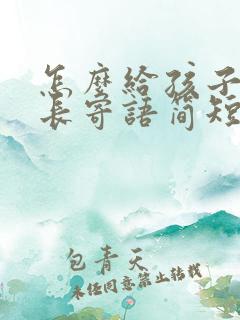 怎麽給孩子
長寄語简短
包青天
未经同意禁止转载